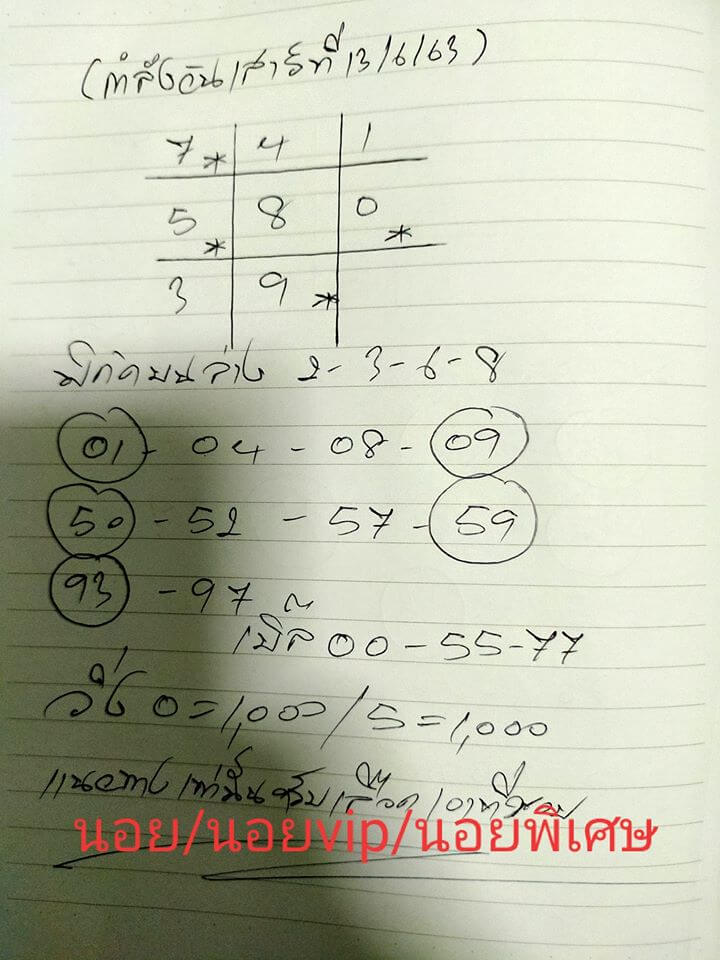 (กำลังวันเสาร์ที่ 13/6/63)
7* 4 1
5* 8 0*
3 9*
พิกัดบนล่าง 2-3-6-8
01 - 04 - 08 - 09
50 - 52 - 57 - 59
93 - 97
เบิ้ล 00 - 55 - 77
วิ่ง 0 = 1,000 / 5 = 1,000
แนวทางเท่านั้นครับเลือกเอาที่ชอบ
นอย/นอยvip/นอยพิเศษ